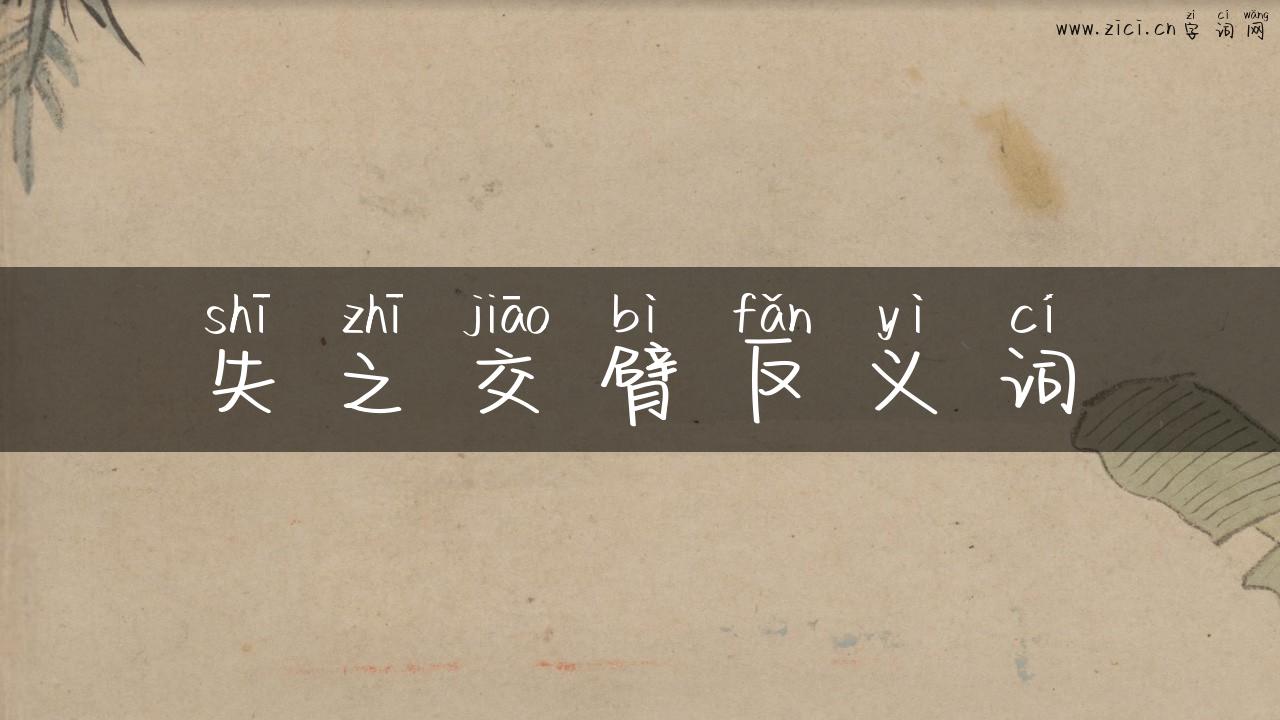 zì cí wǎng
www.zici.cn 字词网
shī zhī jiāo bì fǎn yì cí
失之交臂反义词